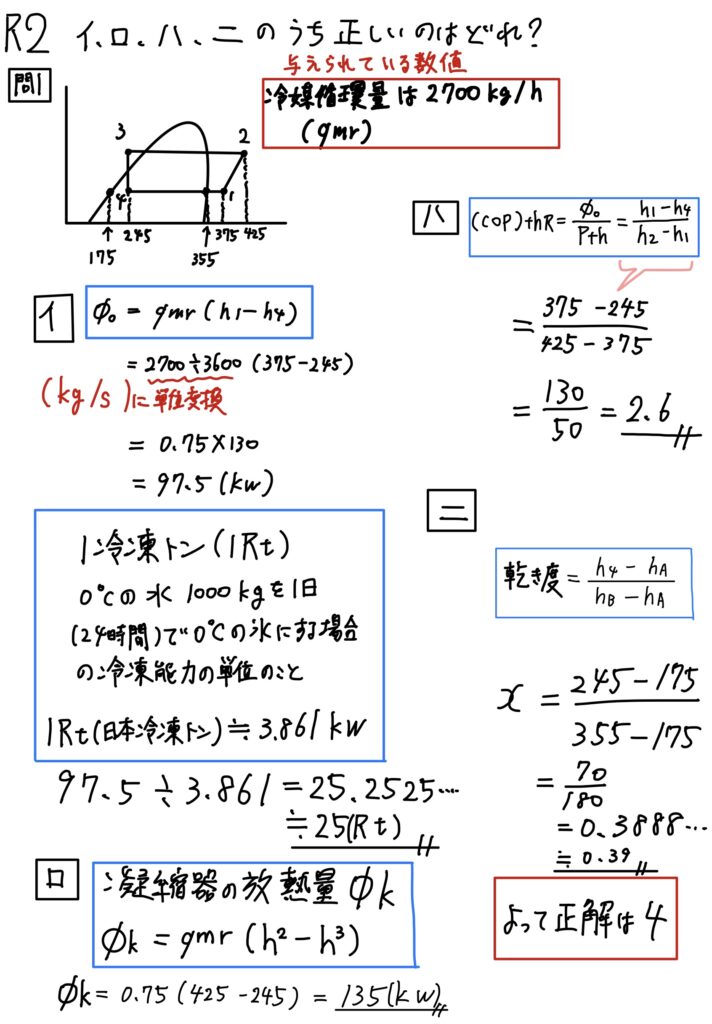 R2 イ、ロ、ハ、ニのうち正しいのはどれ?
問1
与えられている数値
冷媒循環量は2700kg/h
(qmr)
3
2
4
1
245
375
425
↑
↑
175
355
イ
Φo = qmr (h1-h4)
= 2700÷3600 (375-245)
(kg/s)に単位変換
= 0.75×130
= 97.5(kw)
1冷凍トン(1Rt)
0℃の水 1000kgを1日
(24時間)で0℃の氷にする場合
の冷凍能力の単位のこと
1Rt(日本冷凍トン)≒3.861kw
97.5÷3.861=25.2525…
≒25(Rt)
ロ
凝縮器の放熱量 Φk
Φk = qmr (h2-h3)
Φk= 0.75 (425-245) = 135(kw)
ハ
(COP)thR= Φo/Pth = h1-h4/h2-h1
= 375-245/425-375
= 130/50 = 2.6
ニ
乾き度= h4-hA/hB-hA
x = 245-175/355-175
= 70/180
= 0.3888…
≒ 0.39
よって正解は4